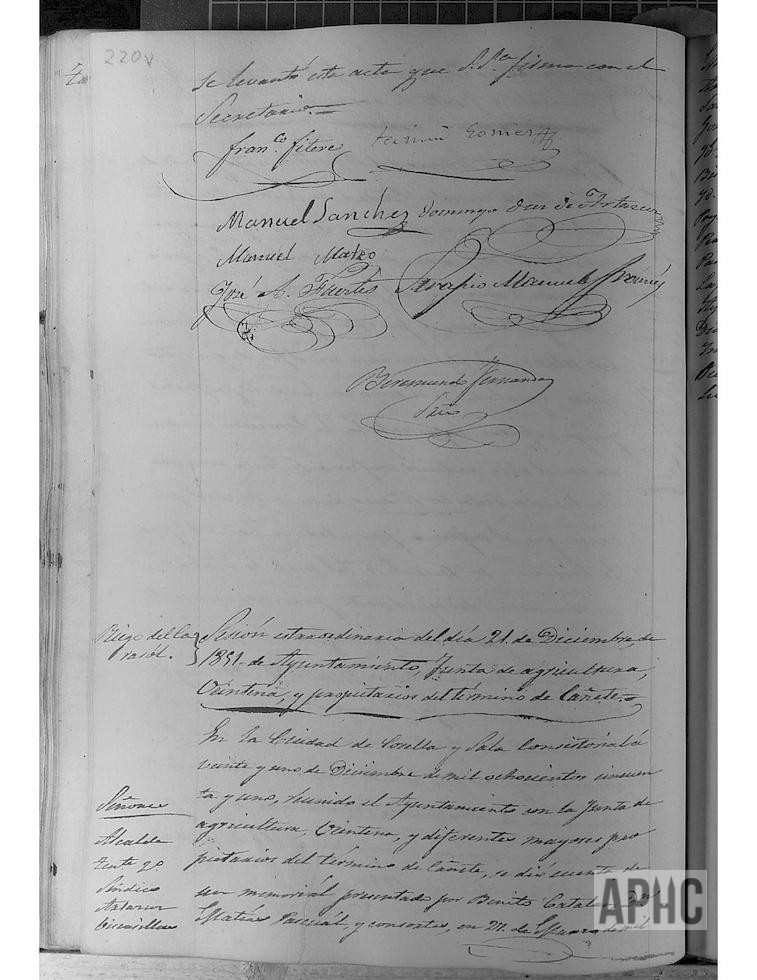 220v
se levantó esta acta que S. Sª firma con el
Secretario.
Fran.co fitere Fermin Gomer
Manuel Sanchez Domingo de Artazcoz
Manuel Mateo
José A. Fuertes Serapio Manuel
Beremundo Fernandez
Pais
Riego del la
Sesión extraordinaria del día 21 de Diciembre de
1851 de Ayuntamiento, Junta de agricultura,
Veintena, y propietarios del término de Cañete.
En la Ciudad de Corella y Sala Consistorial á
veinte y uno de Diciembre de mil ochocientos cincuen
ta y uno, reunido el Ayuntamiento con la Junta de
agricultura, Veintena, y diferentes mayores pro
pietarios del término de Cañete, se dió cuenta de
un memorial presentado por Benito Catalan, Dn
Matías Pascual, y consortes, en 27 de Marzo de mil
Señores
Alcalde
Tente. 2º
Síndico
APHC